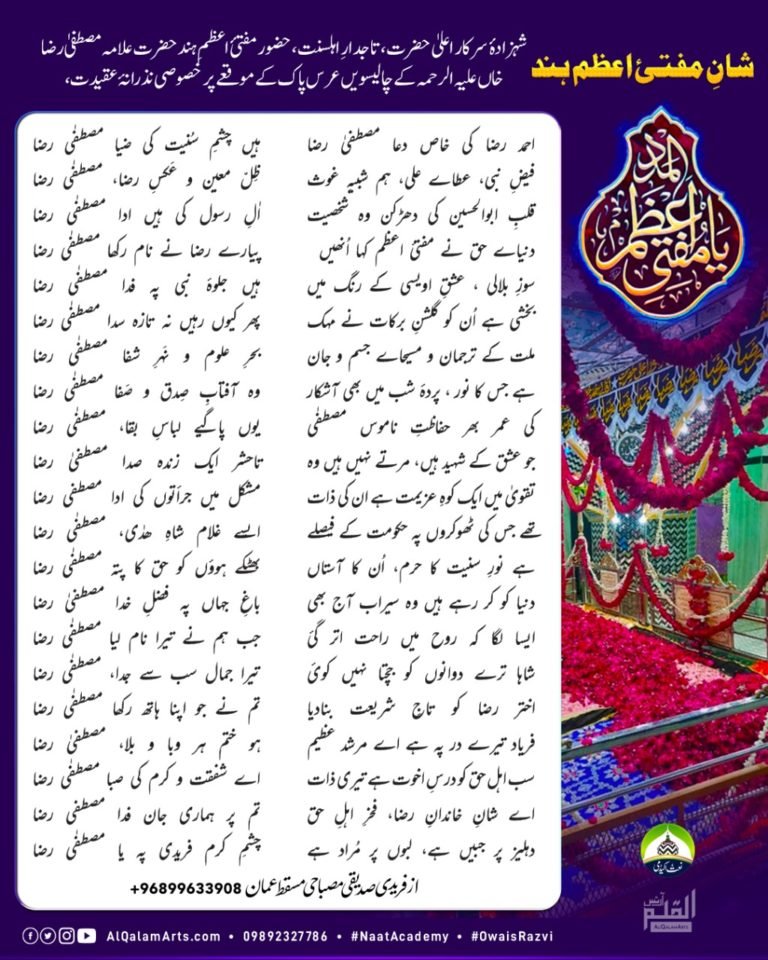 شانِ مفتیٔ اعظم ہند
شہزادۂ سرکار اعلیٰ حضرت، تاجدارِ اہلسنت، حضور مفتیٔ اعظم ہند حضرت علامہ مصطفیٰ رضا
خاں علیہ الرحمہ کے چالیسویں عرس پاک کے موقعے پر خصوصی نذرانۂ عقیدت،
المدد
یا مفتیٔ اعظم
احمد رضا کی خاص دعا مصطفیٰ رضا ہیں چشمِ سُنیت کی ضیا مصطفیٰ رضا
فیضِ نبی، عطاے علی، ہم شبیہِ غوث ظِلِّ معین و عَکسِ رضا، مصطفیٰ رضا
قلبِ ابوالحسین کی دھڑکن وہ شخصیت اٰلِ رسول کی ہیں ادا مصطفیٰ رضا
دنیاے حق نے مفتیٔ اعظم کہا اُنھیں پیارے رضا نے نام رکھا مصطفیٰ رضا
سوزِ بلالی ، عشقِ اویسی کے رنگ میں ہیں جلوۂ نبی پہ فدا مصطفیٰ رضا
بخشی ہے اُن کو گلشنِ برکات نے مہک پھر کیوں رہیں نہ تازہ سدا مصطفیٰ رضا
ملت کے ترجمان و مسیحاے جسم و جان بحرِ علوم و نہرِ شفا مصطفیٰ رضا
ہے جس کا نور ، پردۂ شب میں بھی آشکار وہ آفتابِ صِدق و صَفا مصطفیٰ رضا
کی عمر بھر حفاظتِ ناموسِ مصطفیٰ یوں پاگیے لباسِ بقا، مصطفیٰ رضا
جو عشق کے شہید ہیں، مرتے نہیں ہیں وہ تاحشر ایک زندہ صدا مصطفیٰ رضا
تقویٰ میں ایک کوہِ عزیمت ہے ان کی ذات مشکل میں جرأتوں کی ادا مصطفیٰ رضا
تھے جس کی ٹھوکروں پہ حکومت کے فیصلے ایسے غلامِ شاہِ ھدٰی، مصطفیٰ رضا
ہے نورِ سنیت کا حرم، اُن کا آستاں بھٹکے ہوؤں کو حق کا پتہ مصطفیٰ رضا
دنیا کو کر رہے ہیں وہ سیراب آج بھی باغِ جہاں پہ فضلِ خدا مصطفیٰ رضا
ایسا لگا کہ روح میں راحت اتر گئی جب ہم نے تیرا نام لیا مصطفیٰ رضا
شاہا ترے دوانوں کو جچتا نہیں کوئی تیرا جمال سب سے جدا، مصطفیٰ رضا
اختر رضا کو تاجِ شریعت بنادیا تم نے جو اپنا ہاتھ رکھا مصطفیٰ رضا
فریاد تیرے در پہ ہے اے مرشدِ عظیم ہو ختم ہر وبا و بلا، مصطفیٰ رضا
سب اہلِ حق کو درسِ اخوت ہے تیری ذات اے شفقت و کرم کی صبا مصطفیٰ رضا
اے شانِ خاندانِ رضا، فخرِ اہلِ حق تم پر ہماری جان فدا مصطفیٰ رضا
دہلیز پر جبیں ہے، لبوں پر مُراد ہے چشمِ کرم فریدی پہ یا مصطفیٰ رضا
از فریدی صدیقی مصباحی مسقط عمان 96899633908+
نعت اکیڈمی
القلم آرٹس
ALQALAMARTS
AlQalamArts.com • 09892327786 • #NaatAcademy • #OwaisRazvi